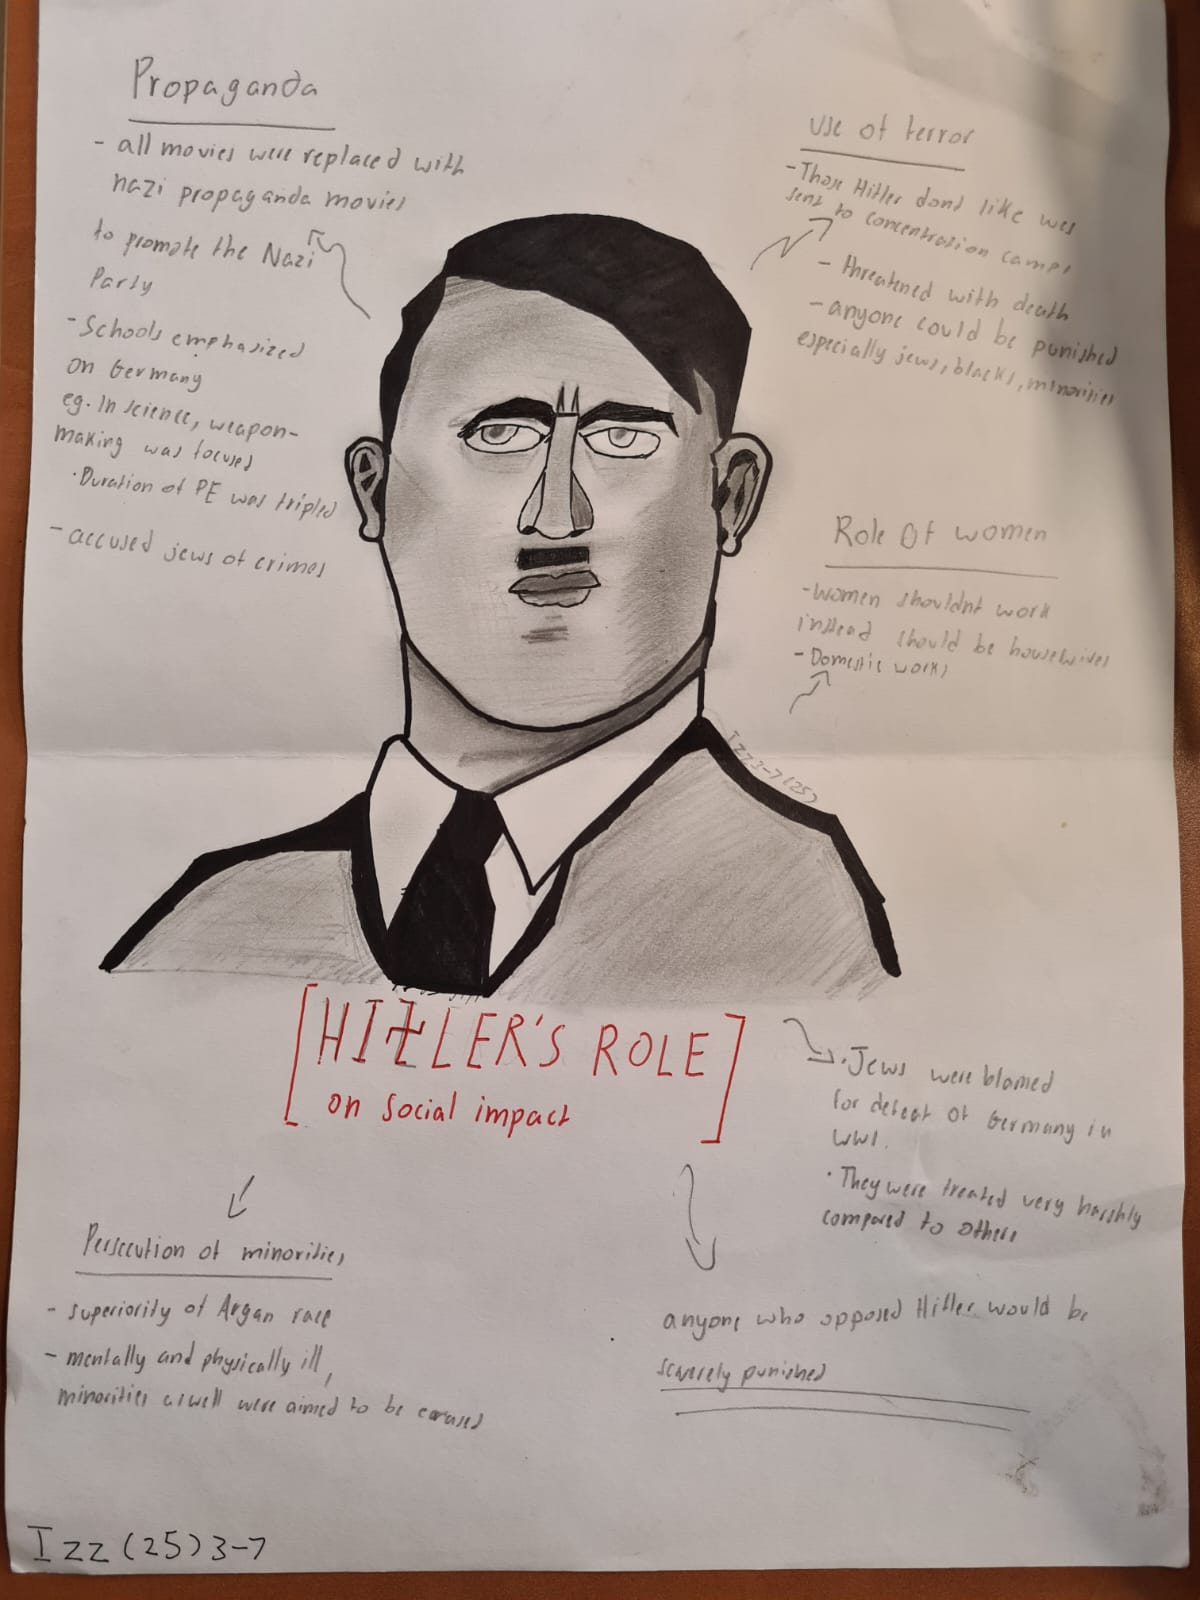 Propaganda
- all movies were replaced with
nazi propaganda movies
to promote the Nazi
Party
- Schools emphasized
on Germany
eg. In science, weapon-
making was focused
· Duration of PE was tripled
- accused jews of crimes
use of terror
- Those Hitler dont like was
sent to concentration camps
- threatened with death
- anyone could be punished
especially jews, blacks, minorities
Role Of women
- women shouldnt work
instead should be housewives
- Domestic works
Izz 3-7 (25)
[HITLER'S ROLE]
on social impact
· Jews were blamed
for defeat of Germany in
WW1.
· They were treated very harshly
compared to others
Persecution of minorities
- superiority of Argan race
- mentally and physically ill,
minorities aswell were aimed to be erased
anyone who opposed Hitler would be
severely punished
Izz (25) 3-7